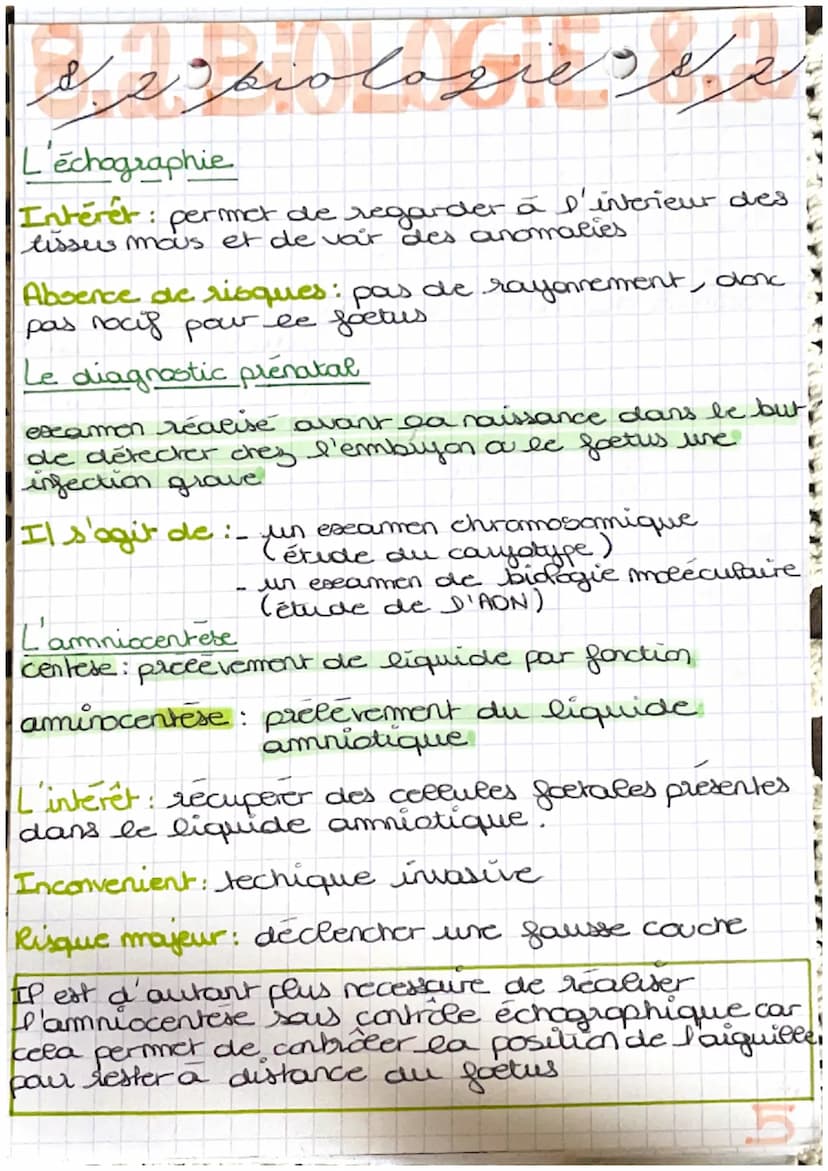 8.2 BiOLOGiE 8.2
8.2 biologie 8.2
L'échographie
Intérêt : permet de regarder à l'interieur des
tissus mous et de voir des anomalies
Absence de risques : pas de rayonnement, donc
pas nocif pour le foetus
Le diagnostic prénatal
examen réalisé avant la naissance dans le but
de détecter chez l'embryon ou le foetus une
infection grave
Il s'agit de : - un examen chromosomique
(étude du caryotype)
- un examen de biologie moléculaire
(étude de l'ADN)
L'amniocentèse
centese : prélèvement de liquide par fonction
aminocentèse : prélèvement du liquide
amniotique
L'intérêt : récupérer des cellules foetales présentes
dans le liquide amniotique.
Inconvenient : techique invasive
Risque majeur : déclencher une fausse couche
Il est d'autant plus necessaire de réaliser
l'amniocentese sous contrôle échographique car
cela permet de contrôler la position de l'aiguille
pour rester à distance du foetus
5